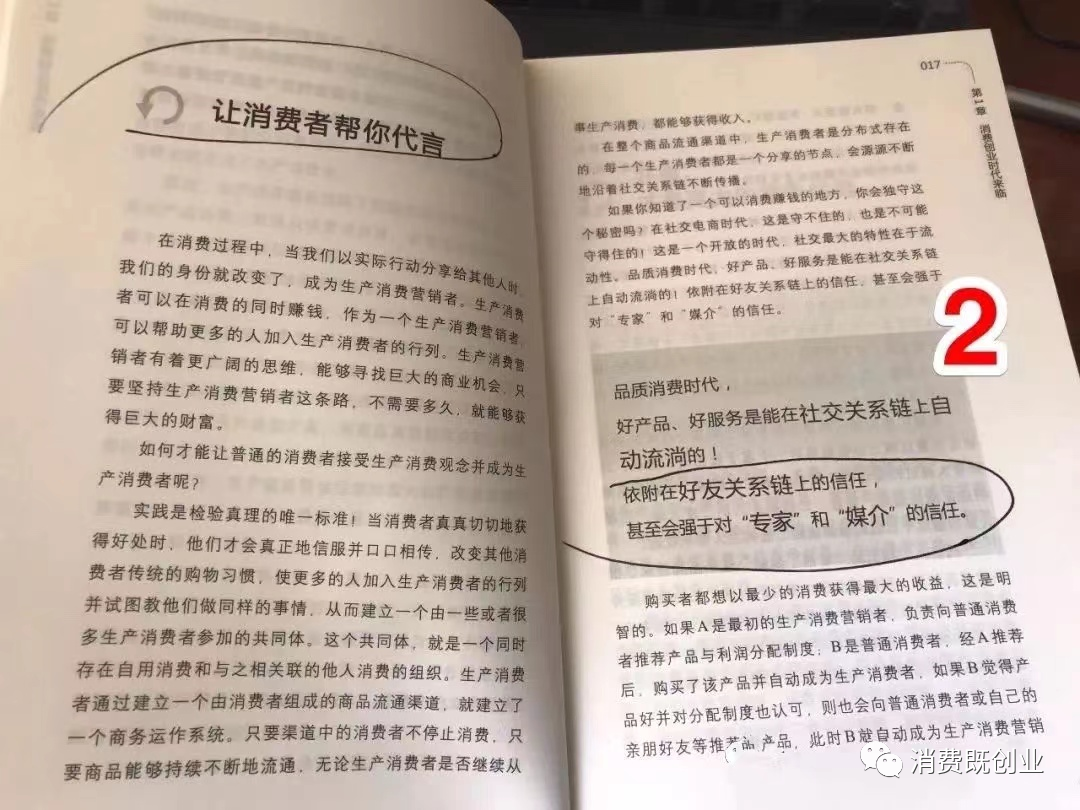 让消费者帮你代言
在消费过程中，当我们以实际行动分享给其他人时，
我们的身份就改变了，成为生产消费营销者。生产消费
者可以在消费的同时赚钱，作为一个生产消费营销者，
可以帮助更多的人加入生产消费者的行列。生产消费营
销者有着更广阔的思维，能够寻找巨大的商业机会，只
要坚持生产消费营销者这条路，不需要多久，就能够获
得巨大的财富。
如何才能让普通的消费者接受生产消费观念并成为生
产消费者呢？
实践是检验真理的唯一标准！当消费者真真切切地获
得好处时，他们才会真正地信服并口口相传，改变其他消
费者传统的购物习惯，使更多的人加入生产消费者的行列
并试图教他们做同样的事情，从而建立一个由一些或者很
多生产消费者参加的共同体。这个共同体，就是一个同时
存在自用消费和与之相关联的他人消费的组织。生产消费
者通过建立一个由消费者组成的商品流通渠道，就建立了
一个商务运作系统。只要渠道中的消费者不停止消费，只
要商品能够持续不断地流通，无论生产消费者是否继续从
017
第1章 消费创业时代来临
事生产消费，都能够获得收入。
在整个商品流通渠道中，生产消费者是分布式存在
的，每一个生产消费者都是一个分享的节点，会源源不断
地沿着社交关系链不断传播。
如果你知道了一个可以消费赚钱的地方，你会独守这
个秘密吗？在社交电商时代，这是守不住的，也是不可能
守得住的！这是一个开放的时代，社交最大的特性在于流
动性。品质消费时代，好产品、好服务是能在社交关系链
上自动流淌的！依附在好友关系链上的信任，甚至会强于
对“专家”和“媒介”的信任。
2
品质消费时代，
好产品、好服务是能在社交关系链上自
动流淌的！
依附在好友关系链上的信任，
甚至会强于对“专家”和“媒介”的信任。
购买者都想以最少的消费获得最大的收益，这是明
智的。如果A是最初的生产消费营销者，负责向普通消费
者推荐产品与利润分配制度，B是普通消费者，经A推荐
后，购买了该产品并自动成为生产消费者，如果B觉得产
品好并对分配制度也认可，则也会向普通消费者或自己的
亲朋好友等推荐产品，此时B就自动成为生产消费营销
消费既创业